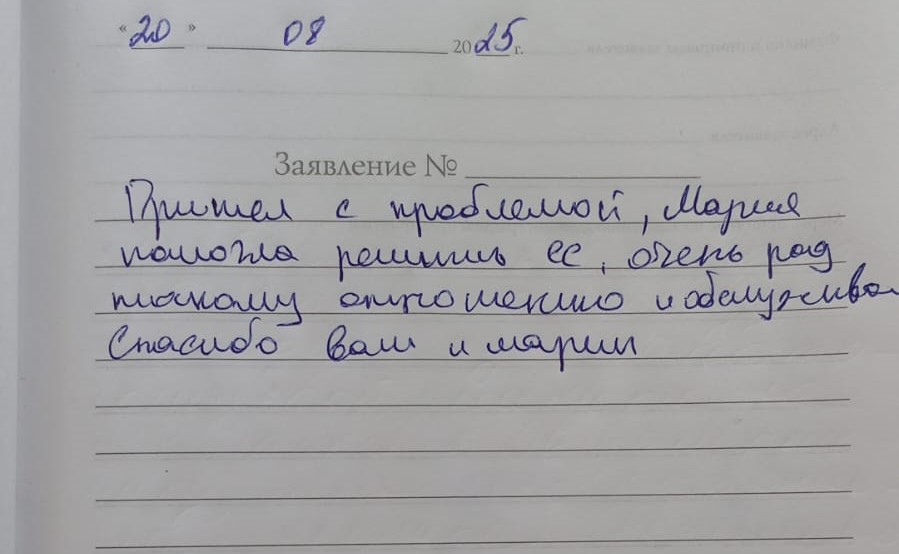 "20" 08 2025 г.
Заявление №
Пришел с проблемой, Мария
помогла решить ее, очень рад
такому отношению и обслужива
Спасибо вам и марии